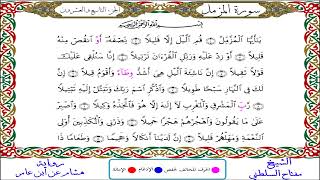 سورة المزمل
الجزء التاسع والعشرون
بِسْمِ اللَّهِ الرَّحْمَٰنِ الرَّحِيمِ
يَٰٓأَيُّهَا الْمُزَّمِّلُ قُمِ الَّيْلَ إِلَّا قَلِيلًا نِّصْفَهُۥٓ أَوُ انقُصْ مِنْهُ
قَلِيلًا أَوْ زِدْ عَلَيْهِ وَرَتِّلِ الْقُرْءَانَ تَرْتِيلًا إِنَّا سَنُلْقِي عَلَيْكَ
قَوْلًا ثَقِيلًا إِنَّ نَاشِئَةَ الَّيْلِ هِيَ أَشَدُّ وِطَآءً وَأَقْوَمُ قِيلًا إِنَّ
لَكَ فِي النَّهَارِ سَبْحًا طَوِيلًا وَاذْكُرِ اسْمَ رَبِّكَ وَتَبَتَّلْ إِلَيْهِ تَبْتِيلًا
رَبِّ الْمَشْرِقِ وَالْمَغْرِبِ لَآ إِلَٰهَ إِلَّا هُوَ فَاتَّخِذْهُ وَكِيلًا وَاصْبِرْ
عَلَىٰ مَا يَقُولُونَ وَاهْجُرْهُمْ هَجْرًا جَمِيلًا وَذَرْنِي وَالْمُكَذِّبِينَ أُولِي
النَّعْمَةِ وَمَهِّلْهُمْ قَلِيلًا إِنَّ لَدَيْنَآ أَنكَالًا وَجَحِيمًا وَطَعَامًا ذَا
الشيخ
مفتاح السلطني
رواية
هشام عن ابن عامر